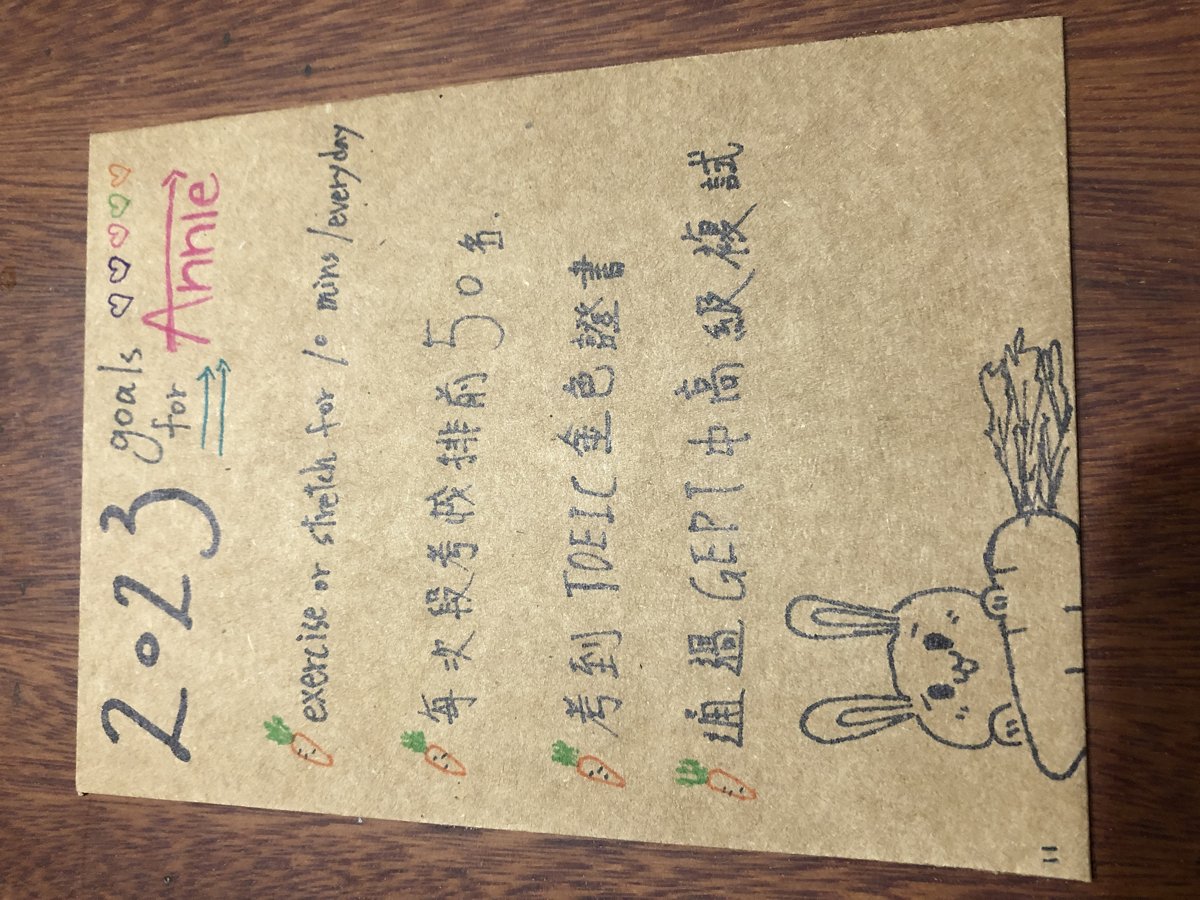 2023 goals
for Annie
exercise or stretch for 10 mins/everyday
每次段考校排前50名.
考到TOEIC金色證書
通過GEPT中高級複試
11